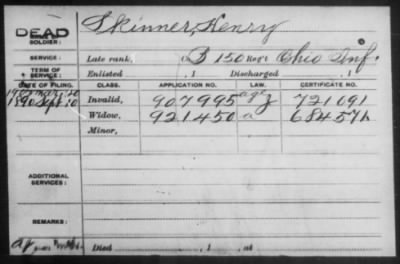 Skinner, Henry
DEAD
SOLDIER:
SERVICE: Late rank, Co B 150 Reg't Ohio Inf.
TERM OF SERVICE: Enlisted , 1 Discharged , 1
DATE OF FILING. CLASS. APPLICATION NO. LAW. CERTIFICATE NO.
Invalid, 907995 721091
1890 Sept 10 Widow, 921450 a 684571
Minor,
ADDITIONAL SERVICES:
REMARKS:
Died , 1 , at